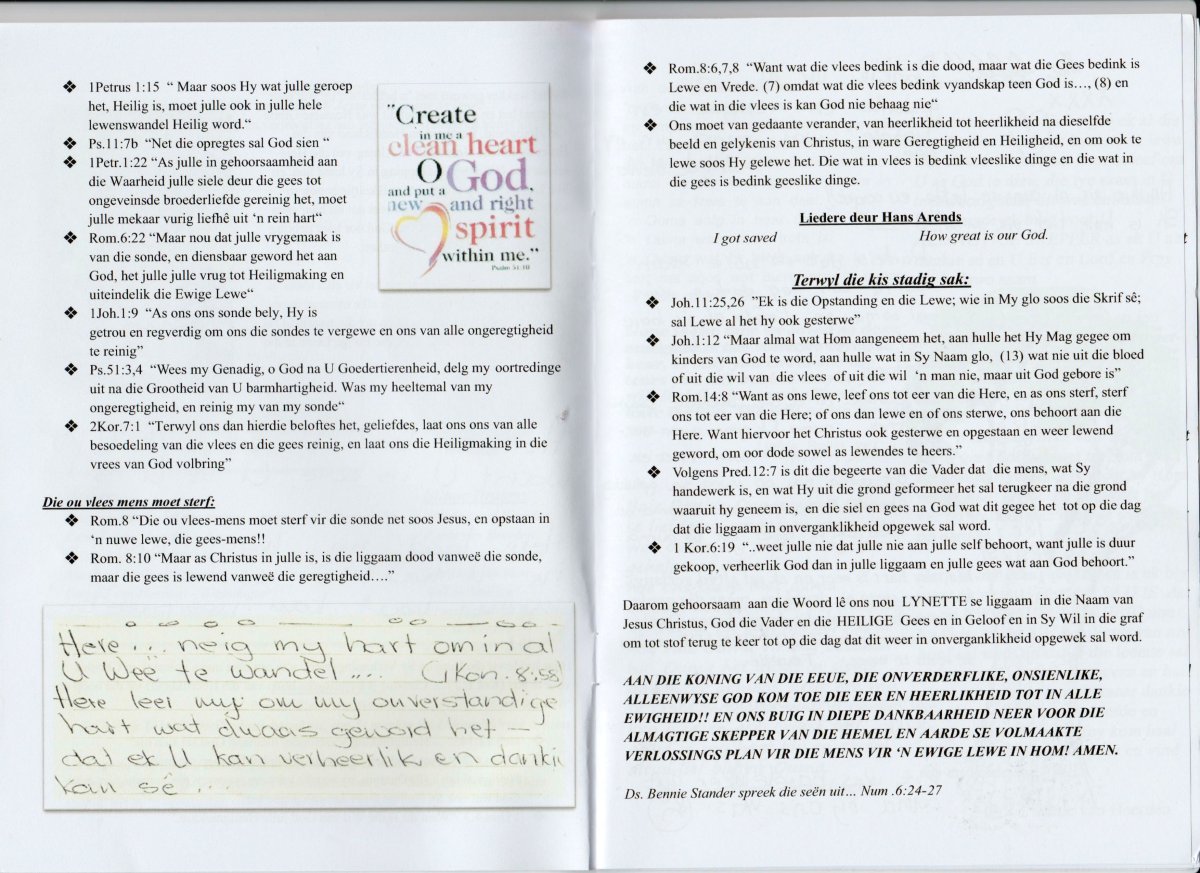 ❖ 1Petrus 1:15 “ Maar soos Hy wat julle geroep
het, Heilig is, moet julle ook in julle hele
lewenswandel Heilig word.“
❖ Ps.11:7b “Net die opregtes sal God sien “
❖ 1Petr.1:22 “As julle in gehoorsaamheid aan
die Waarheid julle siele deur die gees tot
ongeveinsde broederliefde gereinig het, moet
julle mekaar vurig liefhê uit ‘n rein hart“
❖ Rom.6:22 “Maar nou dat julle vrygemaak is
van die sonde, en diensbaar geword het aan
God, het julle julle vrug tot Heiligmaking en
uiteindelik die Ewige Lewe“
❖ 1Joh.1:9 “As ons ons sonde bely, Hy is
getrou en regverdig om ons die sondes te vergewe en ons van alle ongeregtigheid
te reinig”
❖ Ps.51:3,4 “Wees my Genadig, o God na U Goedertierenheid, delg my oortredinge
uit na die Grootheid van U barmhartigheid. Was my heeltemal van my
ongeregtigheid, en reinig my van my sonde“
❖ 2Kor.7:1 “Terwyl ons dan hierdie beloftes het, geliefdes, laat ons ons van alle
besoedeling van die vlees en die gees reinig, en laat ons die Heiligmaking in die
vrees van God volbring”
"Create
in me a
clean heart
O God,
and put a
new and right
spirit
within me."
Psalm 51:10
Die ou vlees mens moet sterf:
❖ Rom.8 “Die ou vlees-mens moet sterf vir die sonde net soos Jesus, en opstaan in
‘n nuwe lewe, die gees-mens!!
❖ Rom. 8:10 “Maar as Christus in julle is, is die liggaam dood vanweë die sonde,
maar die gees is lewend vanweë die geregtigheid….”
Here ... neig my hart om in al
U Weë te wandel .... (1 Kon. 8:58)
Here leer my om my onverstandige
hart wat dwaas geword het –
dat ek U kan verheerlik en dankie
kan sê ...
❖ Rom.8:6,7,8 “Want wat die vlees bedink is die dood, maar wat die Gees bedink is
Lewe en Vrede. (7) omdat wat die vlees bedink vyandskap teen God is…, (8) en
die wat in die vlees is kan God nie behaag nie“
❖ Ons moet van gedaante verander, van heerlikheid tot heerlikheid na dieselfde
beeld en gelykenis van Christus, in ware Geregtigheid en Heiligheid, en om ook te
lewe soos Hy gelewe het. Die wat in vlees is bedink vleeslike dinge en die wat in
die gees is bedink geeslike dinge.
Liedere deur Hans Arends
I got saved How great is our God.
Terwyl die kis stadig sak:
❖ Joh.11:25,26 ”Ek is die Opstanding en die Lewe; wie in My glo soos die Skrif sê;
sal Lewe al het hy ook gesterwe”
❖ Joh.1:12 “Maar almal wat Hom aangeneem het, aan hulle het Hy Mag gegee om
kinders van God te word, aan hulle wat in Sy Naam glo, (13) wat nie uit die bloed
of uit die wil van die vlees of uit die wil ‘n man nie, maar uit God gebore is”
❖ Rom.14:8 “Want as ons lewe, leef ons tot eer van die Here, en as ons sterf, sterf
ons tot eer van die Here; of ons dan lewe en of ons sterwe, ons behoort aan die
Here. Want hiervoor het Christus ook gesterwe en opgestaan en weer lewend
geword, om oor dode sowel as lewendes te heers.”
❖ Volgens Pred.12:7 is dit die begeerte van die Vader dat die mens, wat Sy
handewerk is, en wat Hy uit die grond geformeer het sal terugkeer na die grond
waaruit hy geneem is, en die siel en gees na God wat dit gegee het tot op die dag
dat die liggaam in onverganklikheid opgewek sal word.
❖ 1 Kor.6:19 “..weet julle nie dat julle nie aan julle self behoort, want julle is duur
gekoop, verheerlik God dan in julle liggaam en julle gees wat aan God behoort.”
Daarom gehoorsaam aan die Woord lê ons nou LYNETTE se liggaam in die Naam van
Jesus Christus, God die Vader en die HEILIGE Gees en in Geloof en in Sy Wil in die graf
om tot stof terug te keer tot op die dag dat dit weer in onverganklikheid opgewek sal word.
AAN DIE KONING VAN DIE EEUE, DIE ONVERDERFLIKE, ONSIENLIKE,
ALLEENWYSE GOD KOM TOE DIE EER EN HEERLIKHEID TOT IN ALLE
EWIGHEID!! EN ONS BUIG IN DIEPE DANKBAARHEID NEER VOOR DIE
ALMAGTIGE SKEPPER VAN DIE HEMEL EN AARDE SE VOLMAAKTE
VERLOSSINGS PLAN VIR DIE MENS VIR ‘N EWIGE LEWE IN HOM! AMEN.
Ds. Bennie Stander spreek die seën uit… Num .6:24-27